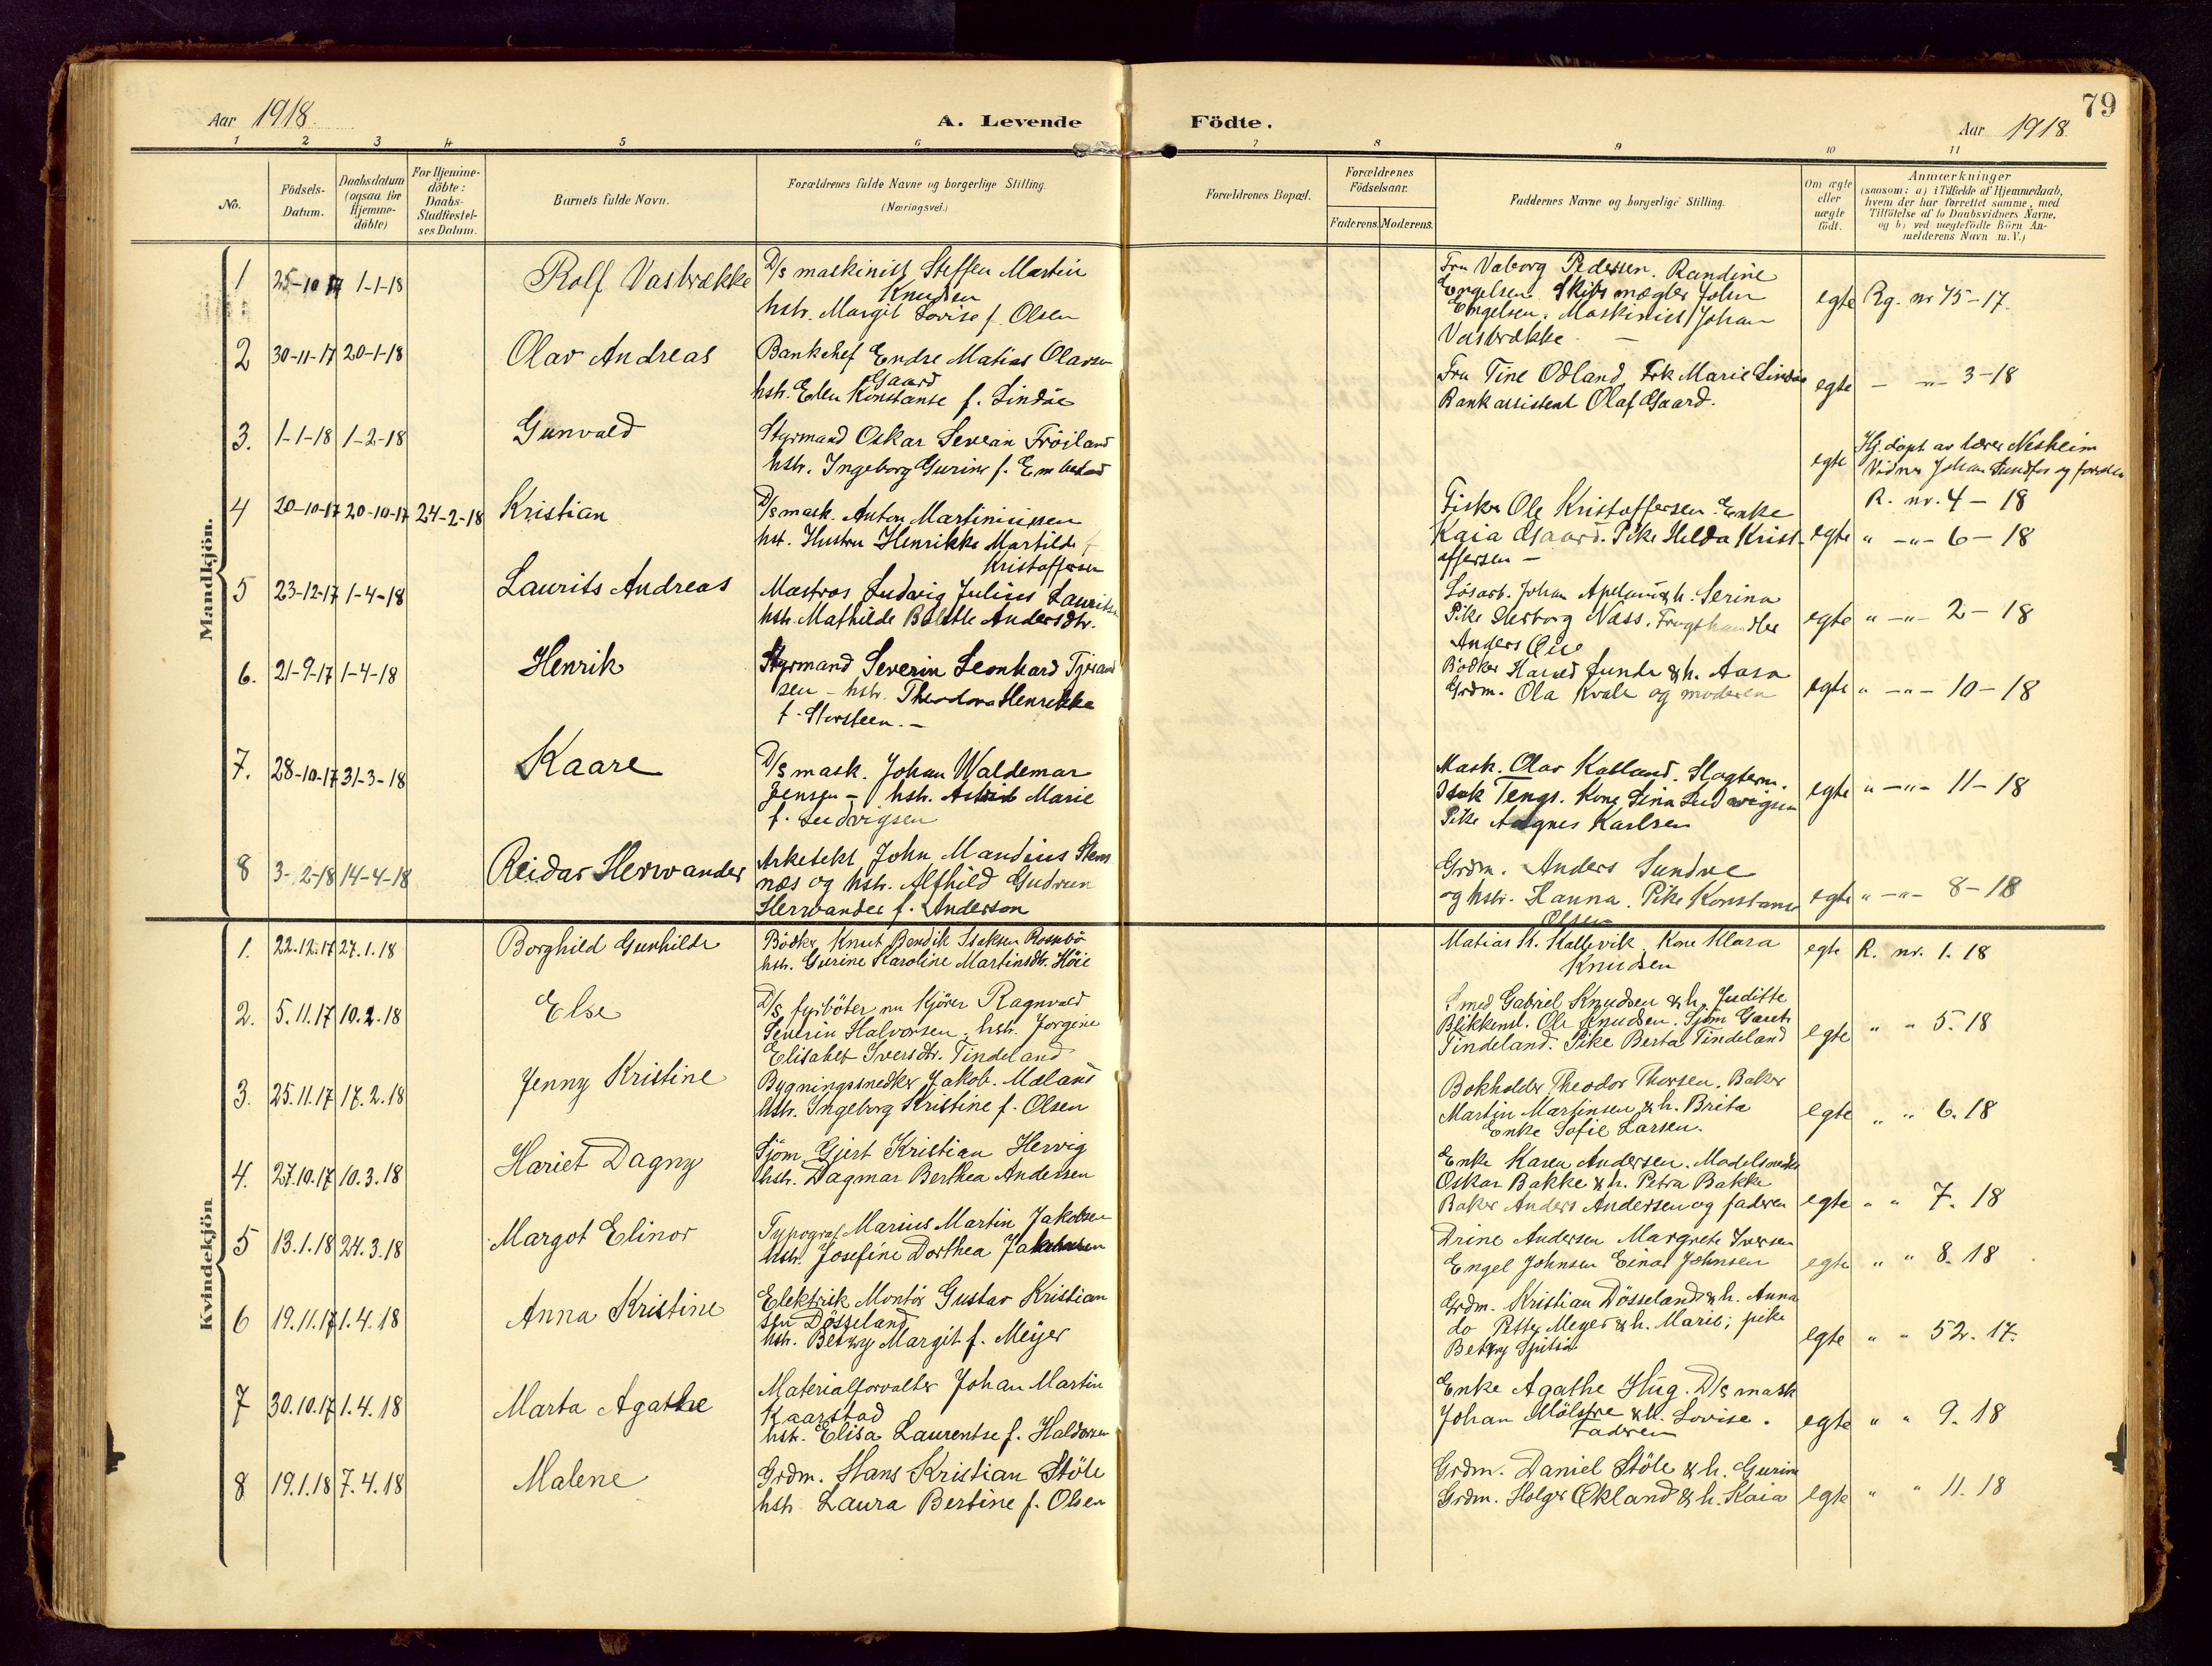 79
Aar 1918.
A. Levende Födte.
Aar 1918
1 2 3 4 5 6 7 8 9 10 11
No.
Födsels-
Datum.
Daabsdatum
(ogsaa for
Hjemme-
döbte)
For Hjemme-
döbte:
Daabs-
Stadfæstel-
ses Datum.
Barnets fulde Navn.
Forældrenes fulde Navne og borgerlige Stilling.
(Næringsvei.)
Forældrenes Bopæl.
Forældrenes
Födselsaar.
Faderens. Moderens.
Faddernes Navne og borgerlige Stilling.
Om ægte
eller
uægte
födt.
Anmærkninger
(saasom: a) i Tilfælde af Hjemmedaab,
hvem der har forrettet samme, med
Tilföielse af to Daabsvidners Navne,
og b) ved uægtefödte Börn An-
melderens Navn m. V.)
Mandkjön.
1 25-10-17 1-1-18 Rolf Vasbrække
D/s maskinist Steffen Martin
Knudsen
hstr. Margit Lovise f. Olsen
Fru Valborg Pedersen. Randine
Engelsen. Skibsmægler John
Engelsen. Maskinist Johan
Vasbrække
egte Rg. nr 75-17.
2 30-11-17 20-1-18 Olav Andreas
Bankchef Endre Matias Olavsen
Gaard
hstr. Ellen Konstanse f. Lindöe
Fru Tine Odland, Frk Marie Lindöe
Bankassistent Olaf Gaard.
egte - -"- 3-18
3. 1-1-18 1-2-18 Gunvald
Styrmand Oskar Severin Fröiland
hstr. Ingeborg Gurine f.
egte Hj. döpt av lærer Nesheim
Vidner Johan Sundfør og faren
R. nr. 4 - 18
4 20-10-17 20-10-17 24-2-18 Kristian
D/s mask. Anton Martiniussen
hst. Hustru Henrikke Martilde f
Kristoffersen
Fisker Ole Kristoffersen. Enke
Kaia Gaard. Pike Helda Krist-
offersen -
egte " -"- 6 - 18
5 23-12-17 1-4-18 Laurits Andreas
Matros Ludvig Julius Lauritsen
hstr. Mathilde Bolette Andersdtr.
Lösarb. Johan Apeland & h. Serina
Pike Herborg Næss. Frugthandler
Anders
egte " -"- 2 - 18
6. 21-9-17 1-4-18 Henrik
Styrmand Severin Leonhard
sen - hstr. Theodora Henrikke
f. Storsteen. -
Bödker Harald Lunde & h. Aasa
Grdm. Ola Kvale og moderen
egte " -"- 10 - 18
7. 28-10-17 31-3-18 Kaare
D/s mask. Johan Waldemar
Jensen - hstr. Astrid Marie
f. Ludvigsen
Mask. Olav Kalland. Slagterm.
Isak Tengs. Kone Lina Ludvigsen
Pike Aagnes Karlsen
egte " -"- 11 - 18
8 3-2-18 14-4-18 Reidar Herwander
Arkitekt John Mandius Stens
næs og hstr. Alfhild Gudrun
Herwander f. Anderson
Grdm. Anders Sundve
og hstr. Hanna. Pike Konstanse
Olsen
egte " -"- 8 - 18
Kvindekjön
1. 22.12.17 27.1.18 Borghild Gunhilde
Bödker Knut Bendik Isaksen Rossebö
hstr. Gurine Karoline Martinsdtr. Höie
Matias K. Kallevik, Kone Klara
Knudsen
egte R. nr. 1. 18
2. 5.11.17 10.2.18 Else
D/s fyrböter nu kjörer Ragnvald
Severin Halvorsen, hstr. Jorgine
Elisabet Iversdtr. Tindeland
Smed Gabriel Knudsen & h. Juditte
Blikkensl. Ole Knudsen. Sjöm Garet
Tindeland. Pike Berta Tindeland
egte " " 5. 18
3. 25.11.17 17.2.18 Jenny Kristine
Bygningssnedker Jakob Mæland
hstr. Ingeborg Kristine f. Olsen
Bokholder Theodor Thorsen. Baker
Martin Martinsen & h. Brita
Enke Sofie Larsen.
egte " " 6. 18
4. 27.10.17 10.3.18 Hariet Dagny
Sjöm. Gjert Kristian Hervig
hstr. Dagmar Berthea Andersen
Enke Karen Andersen. Modelsnedker
Oskar Bakke & h. Petra Bakke
Baker Anders Andersen og faderen
egte " " 7. 18
5 13.1.18 24.3.18 Margot Elinor
Typograf Marius Martin Jakobsen
hstr. Josefine Dorthea Jakobsen
Drine Andersen Margrete Iversen
Engel Johnsen Einar Johnsen
egte " " 8. 18
6 19.11.17 1.4.18 Anna Kristine
Elektrisk Montör Gustav Kristian
sen Dösseland
hstr. Betzy Margit f. Meijer
Grdm. Kristian Dösseland & h. Anna
do Petter Meyer & h. Marie; pike
Betzy
egte " " 52. 17.
7 30.10.17 1.4.18 Marta Agathe
Materialforvalter Johan Martin
Kaarstad
hstr. Elisa Laurentse f. Haldorsen
Enke Agathe Hüg. D/s mask
Johan Mölstre & h. Lovise.
Faderen
egte " " 9. 18
8 19.1.18 7.4.18 Malene
Grdm. Hans Kristian Stöle
hstr Laura Bertine f. Olsen
Grdm. Daniel Stöle & h. Gurine
Grdm. Holger Økland & h. Kaia
egte " " 11. 18